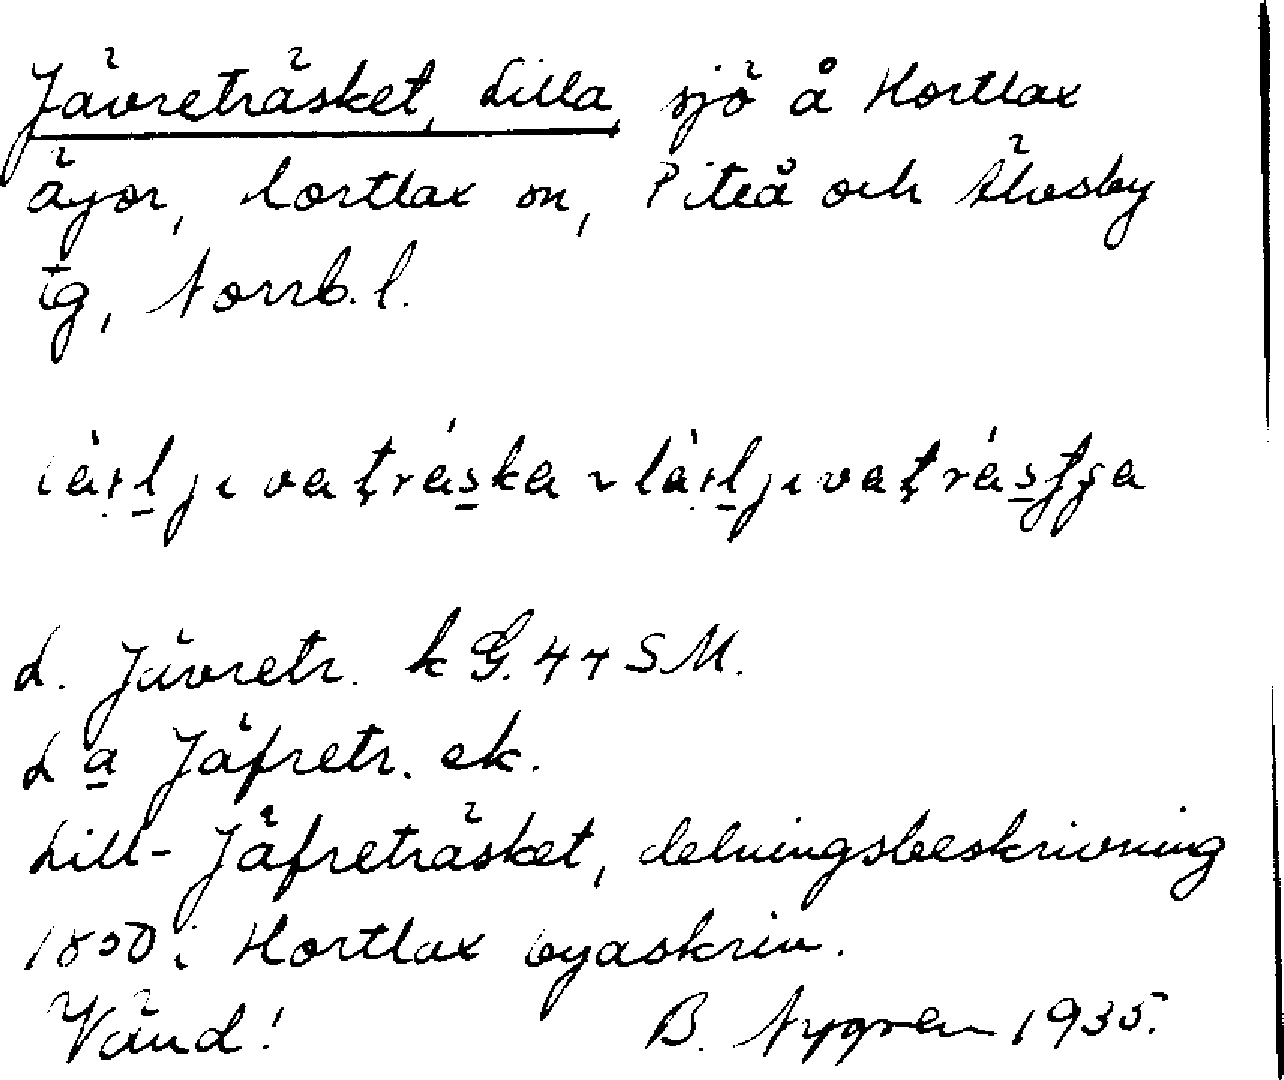 Jävreträsket, Lilla, sjö å Hortlax
ägor, hortlax sn, Piteå och Älvsby
tg, Norrb. l.
L. Jävretr. k G. 44 S M.
L a Jäfretr. ek.
Lill-Jäfreträsket, delningsbeskrivning
1850 i Hortlax byaskrin.
Vänd! B. Nygren 1935.